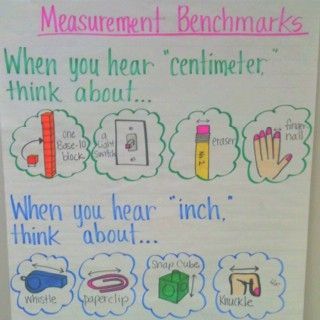 Measurement Benchmarks
When you hear "centimeter,"
think about...
one
Base-10
block
a
light
switch
eraser
finger
nail
When you hear "inch,"
think about...
whistle
paperclip
Snap Cube
Knuckle